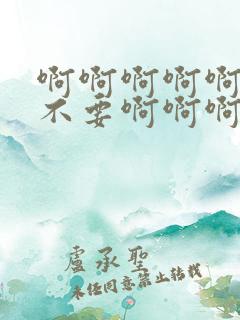 啊啊啊啊啊
不要啊啊啊
盧承聖
未经同意禁止转载